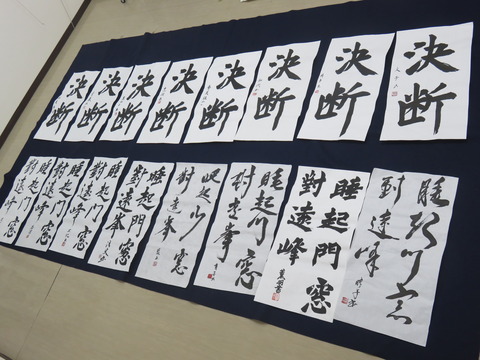 決断
決断
決断
決断
決断
決断
決断
決断
睡起門窓
對遠峰
睡起門窓
對遠峰
睡起門窓
對遠峯
睡起門窓
對遠峯
睡起門窓
對遠峯
睡起門窓
對遠峯
睡起門窓
對遠峰
睡起門窓
對遠峰
對遠峰